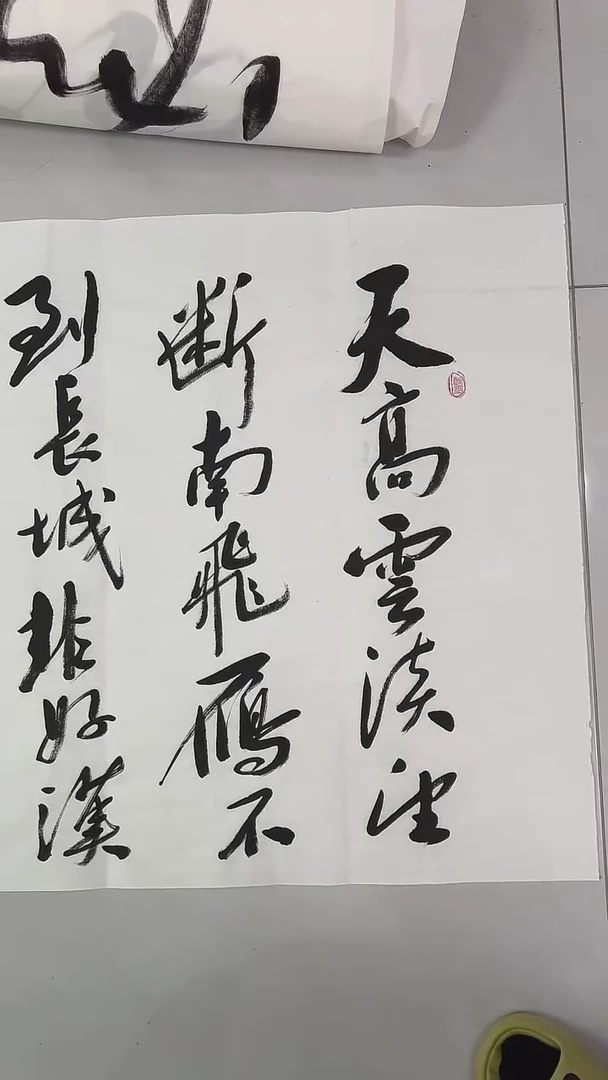 天高雲淡望
斷南飛雁不
到長城非好漢